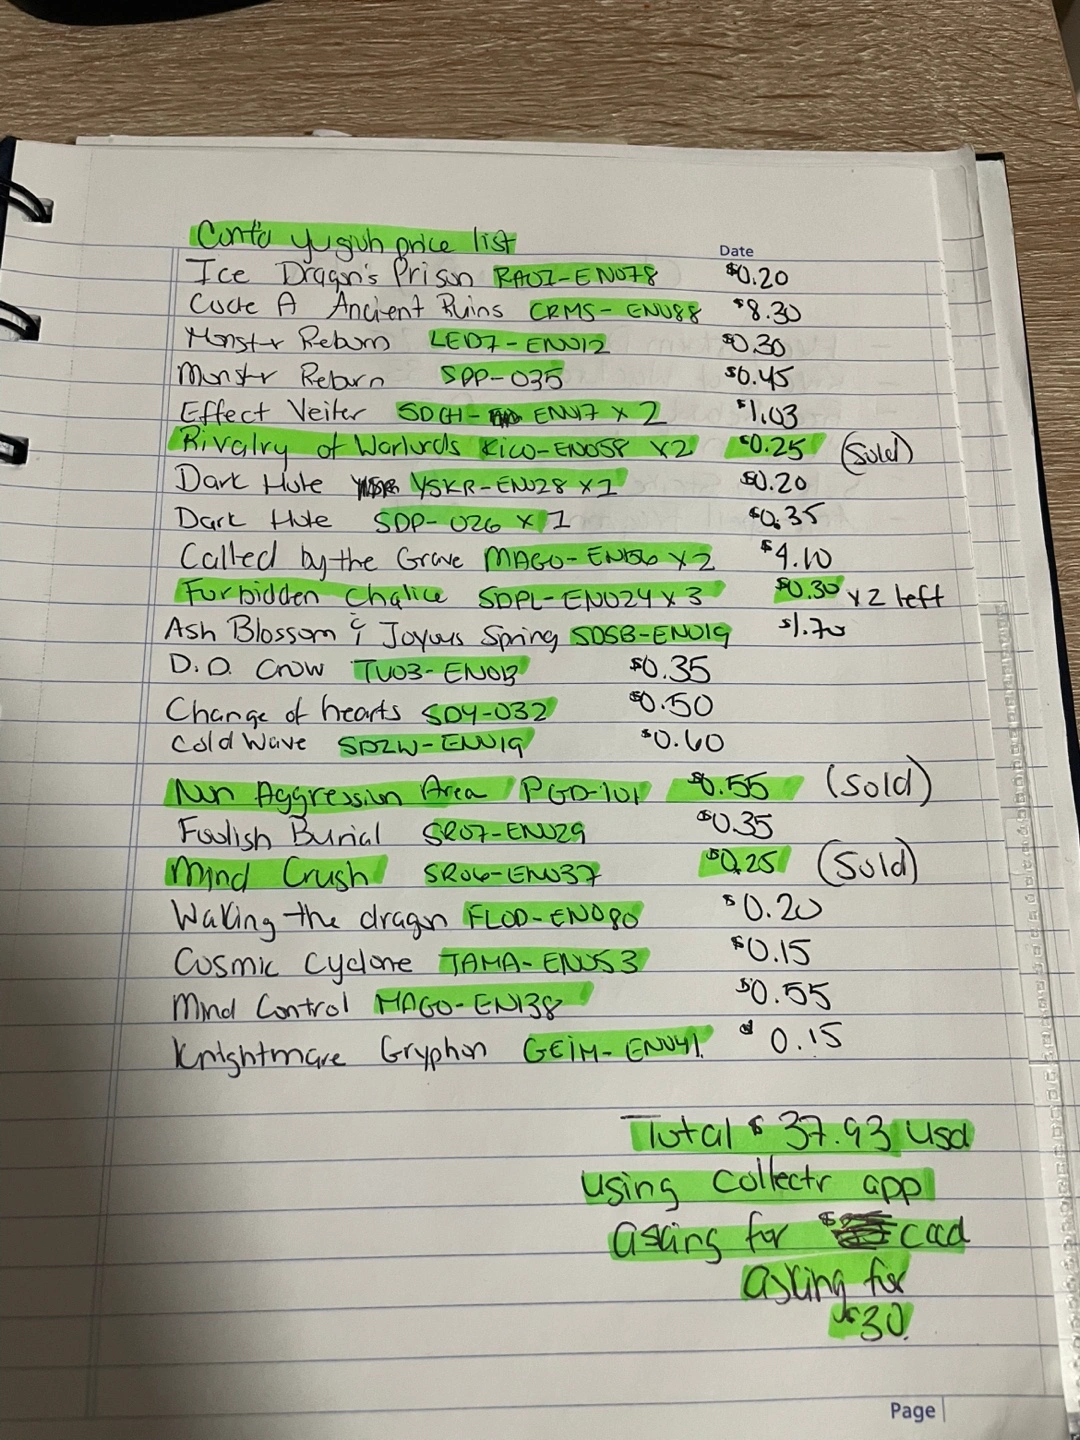 Cont'd yugioh price list
Date
Ice Dragon's Prison RA01-EN078 $0.20
Cocte A Ancient Ruins CRMS-EN088 $8.30
Monstr Reborn LED7-EN012 $0.30
Monstr Reborn SPP-035 $0.45
Effect Veiler SDCH-EN17 x 2 $1.03
Rivalry of Warlords KICO-EN058 x2 $0.25 (Sold)
Dark Hole YSKR-EN028 x1 $0.20
Dark Hole SDP-026 x 1 $0.35
Called by the Grave MAGO-EN136 x 2 $4.10
Forbidden Chalice SDPL-EN024 x 3 $0.30 x2 left
Ash Blossom & Joyous Spring SDSB-EN019 $1.70
D.D. Crow TU03-EN013 $0.35
Change of hearts SDY-032 $0.50
Cold Wave SDZW-EN019 $0.60
Non Aggression Area PGD-101 $0.55 (Sold)
Foolish Burial SR07-EN029 $0.35
Mind Crush SR06-EN037 $0.25 (Sold)
Waking the dragon FLOD-EN080 $0.20
Cosmic Cyclone TAMA-EN053 $0.15
Mind Control MAGO-EN138 $0.55
Knightmare Gryphon GEIM-EN041. 0.15
Total $ 37.93 usd
using collectr app
asking for $ cad
asking for
$30.
Page